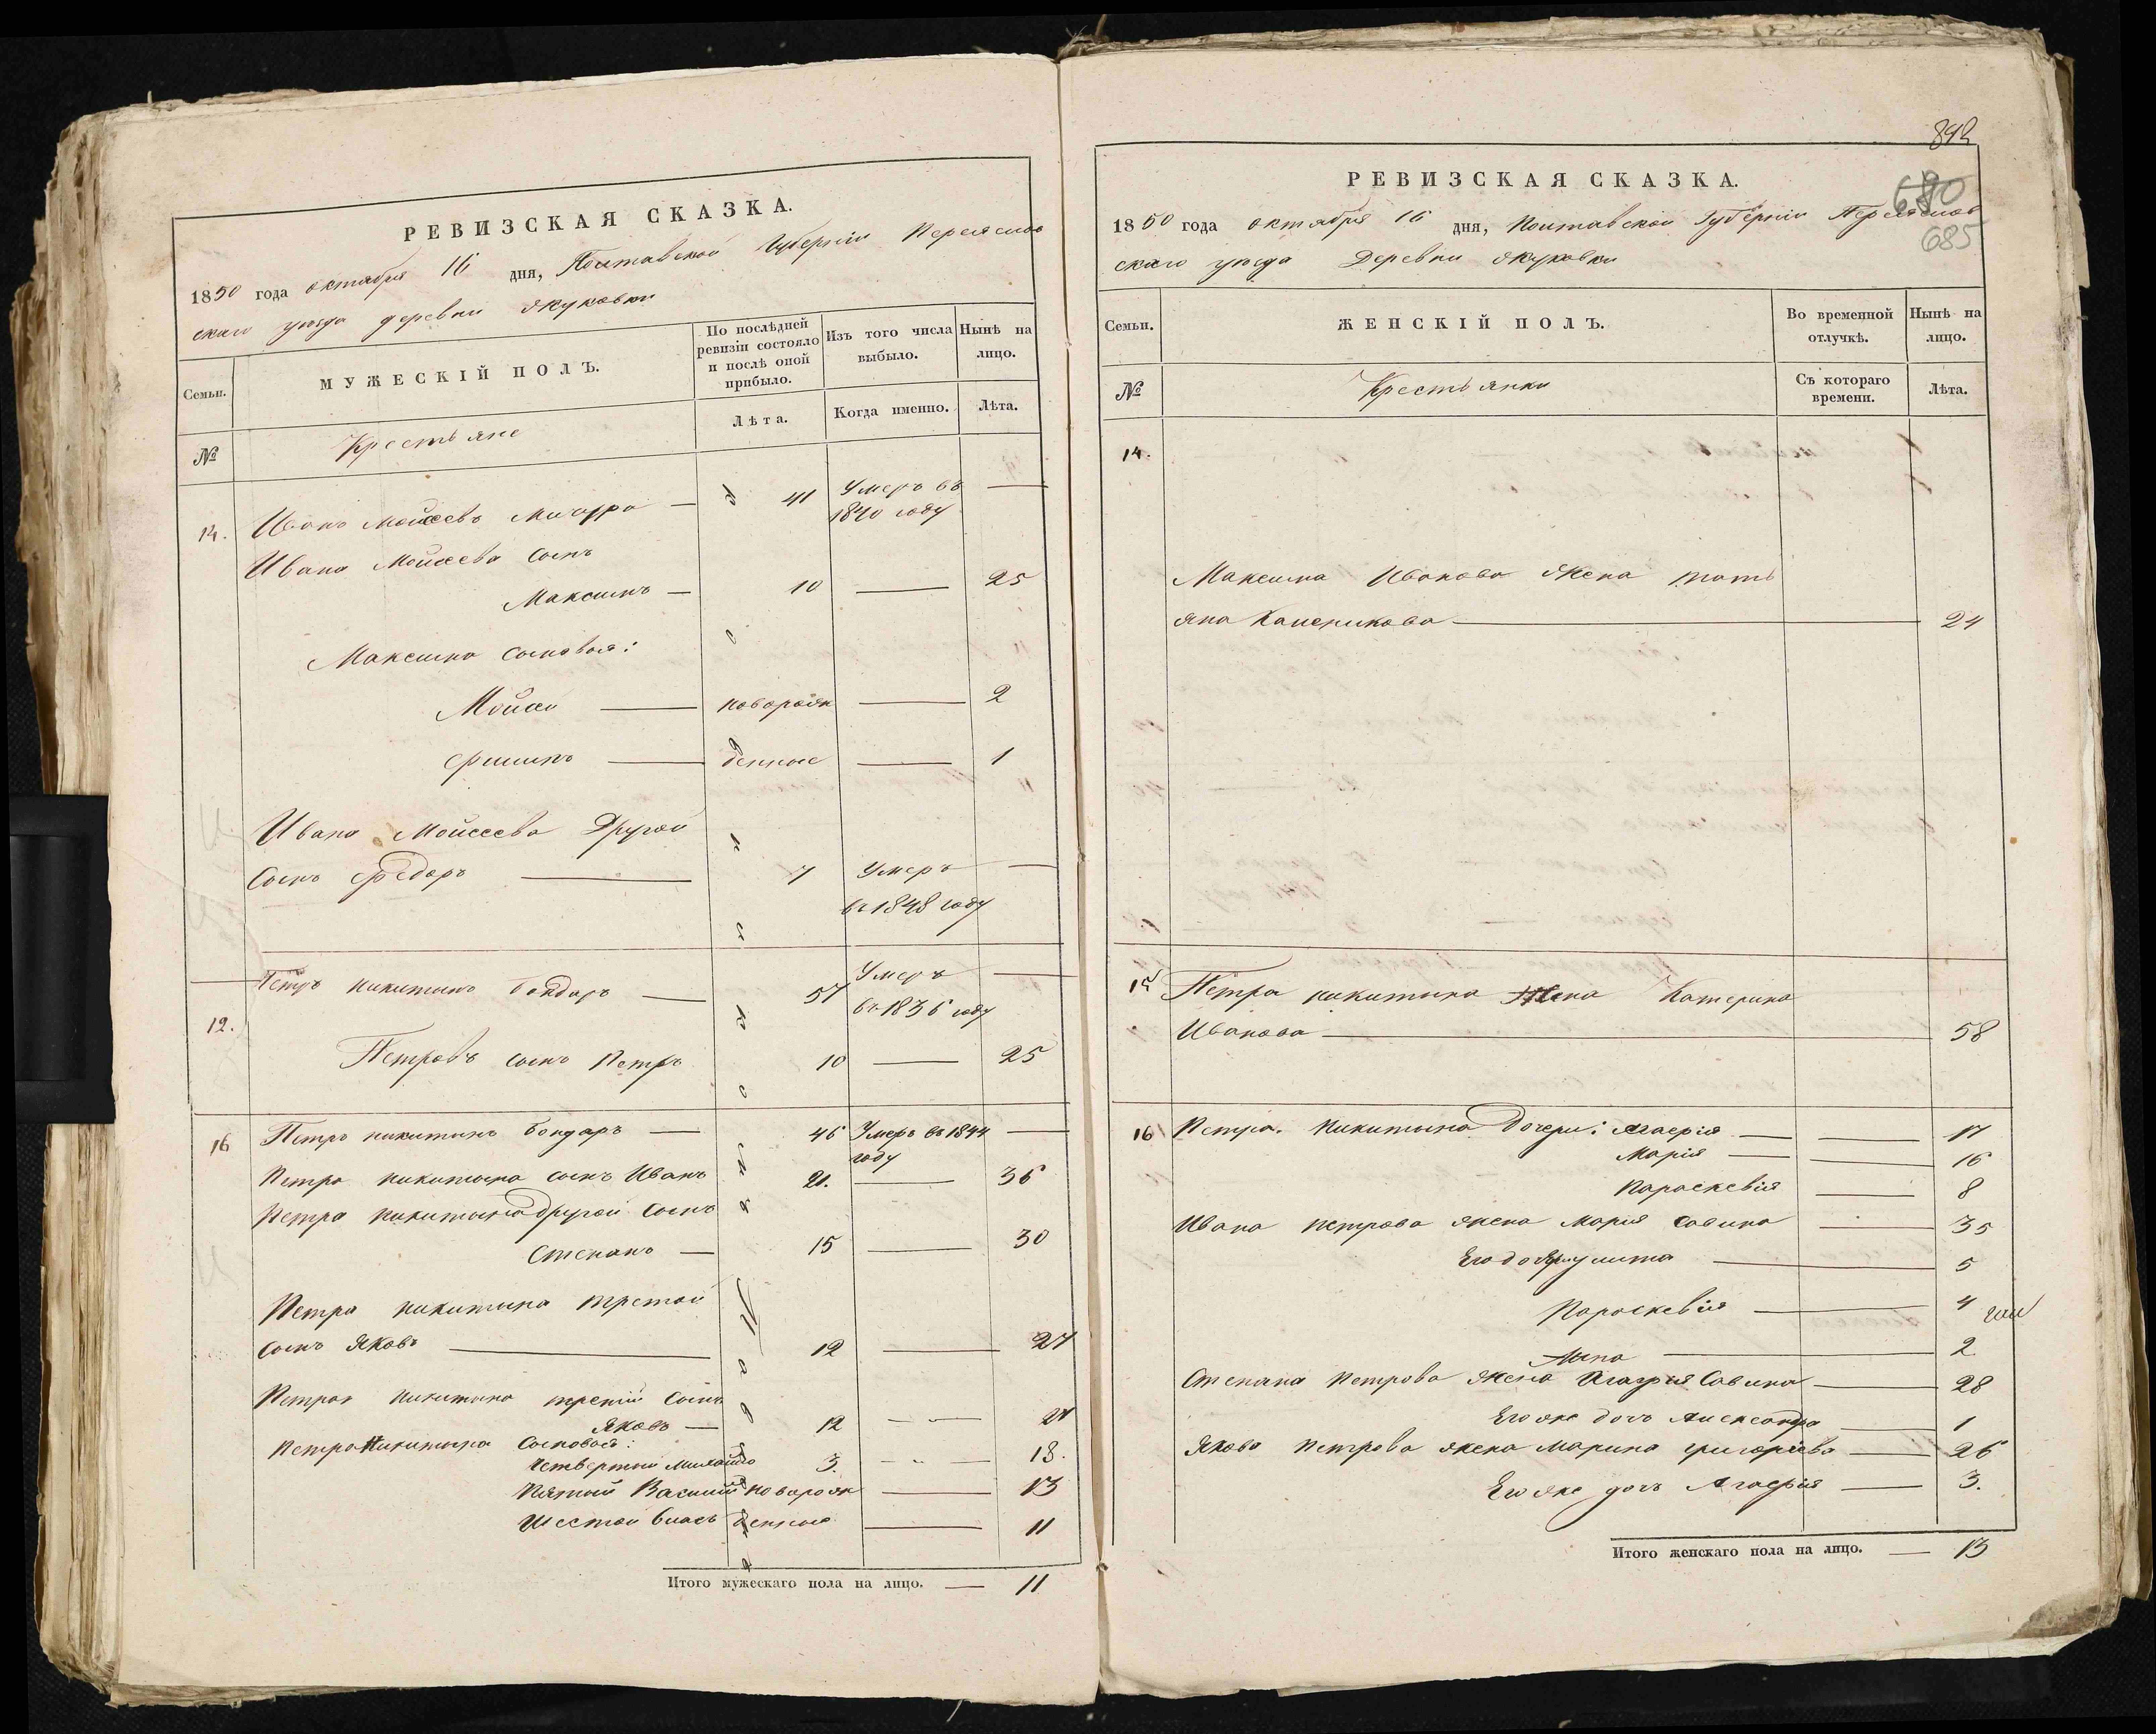 РЕВИЗСКАЯ СКАЗКА.
1850 года октября 16 дня, Полтавской Губерніи Переяслов
скаго уезда деревни Жуковки
Семьи.
МУЖЕСКІЙ ПОЛЪ.
По послѣдней ревизіи состояло и послѣ оной прибыло.
Изъ того числа выбыло.
Нынѣ на лицо.
№
Крестьяне
Лѣта.
Когда именно.
Лѣта.
14. Иванъ Мойсеевъ — 41 Умеръ въ —
1840 году
Ивана Мойсеева сынъ
Максимъ — 10 — 25
Максима сыновья:
Мойсей — новорож — 2
Филипъ — денные — 1
Ивана Мойсеева Другой
Сынъ Федоръ — 7 Умеръ —
въ 1848 году
Петръ Никитинъ Бондарь — 57 Умеръ —
въ 1836 году
12.
Петровъ сынъ Петръ 10 — 25
16 Петръ Никитинъ Бондарь — 46 Умеръ въ 1844 —
году
Петра Никитина сынъ Иванъ 21. — 36
Петра Никитина другой сынъ
Степанъ — 15 — 30
Петра Никитина третой
сынъ Яковъ — 12 — 27
Петра Никитина третій Сынъ
Яковъ — 12 — 27
Петра Никитина Сыновья:
Четвертый Михайло 3. — 18.
Пятый Василий новорож — 13
Шестой Власъ денные — 11
Итого мужескаго пола на лицо. — 11
842
680
685
РЕВИЗСКАЯ СКАЗКА.
1850 года октября 16 дня, Полтавской Губерніи Переяслов
скаго уезда Деревни Жуковки
Семьи.
ЖЕНСКІЙ ПОЛЪ.
Во временной отлучкѣ.
Нынѣ на лицо.
№
Крестьянки
Съ котораго времени.
Лѣта.
14.
Максима Иванова жена Тать
яна — 24
Петра Никитина Жена Катерина
Иванова — 58
16 Петра Никитина Дочери: Агафія — — 17
Марія — — 16
Параскевія — 8
Ивана Петрова жена Марія Савина — 35
Его дочь Улита — 5
Параскевія — 4
Анна — 2
Степана Петрова жена Савина — 28
Его же дочь Александра — 1
Якова Петрова жена Марина Григорьева — 26
Его же дочь Агафія — 3.
Итого женскаго пола на лицо. — 13